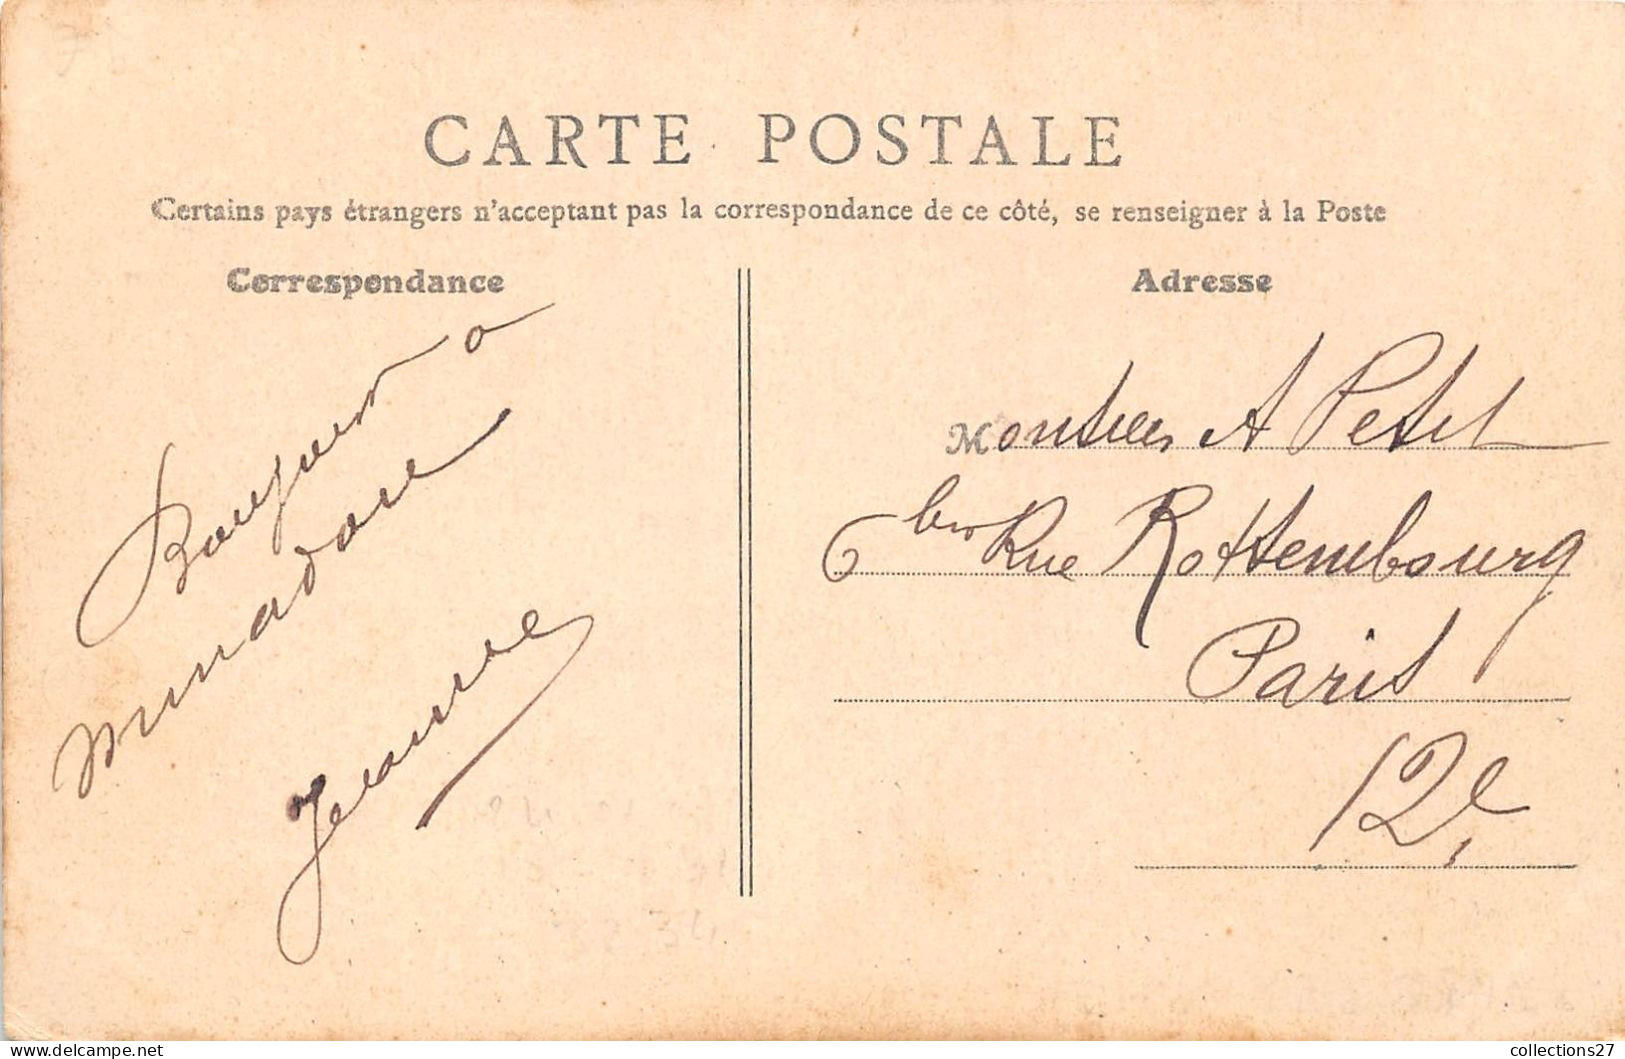 CARTE POSTALE
Certains pays étrangers n'acceptant pas la correspondance de ce côté, se renseigner à la Poste
Correspondance
Adresse
a
Jeanne
Monsieur A Petit
6 bis Rue Rottembourg
Paris
12e
collections27